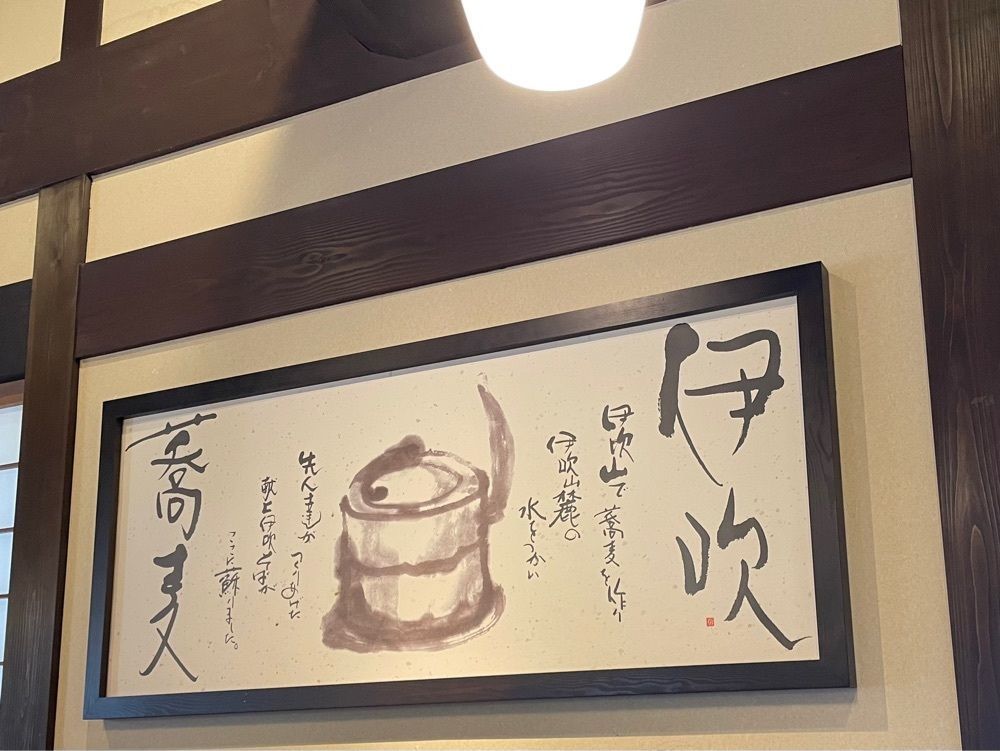 伊吹
伊吹山で蕎麦を作り
伊吹山麓の
水をつかい
先人達が つくりあげた
献上伊吹そばが
ここに蘇りました。
蕎麦